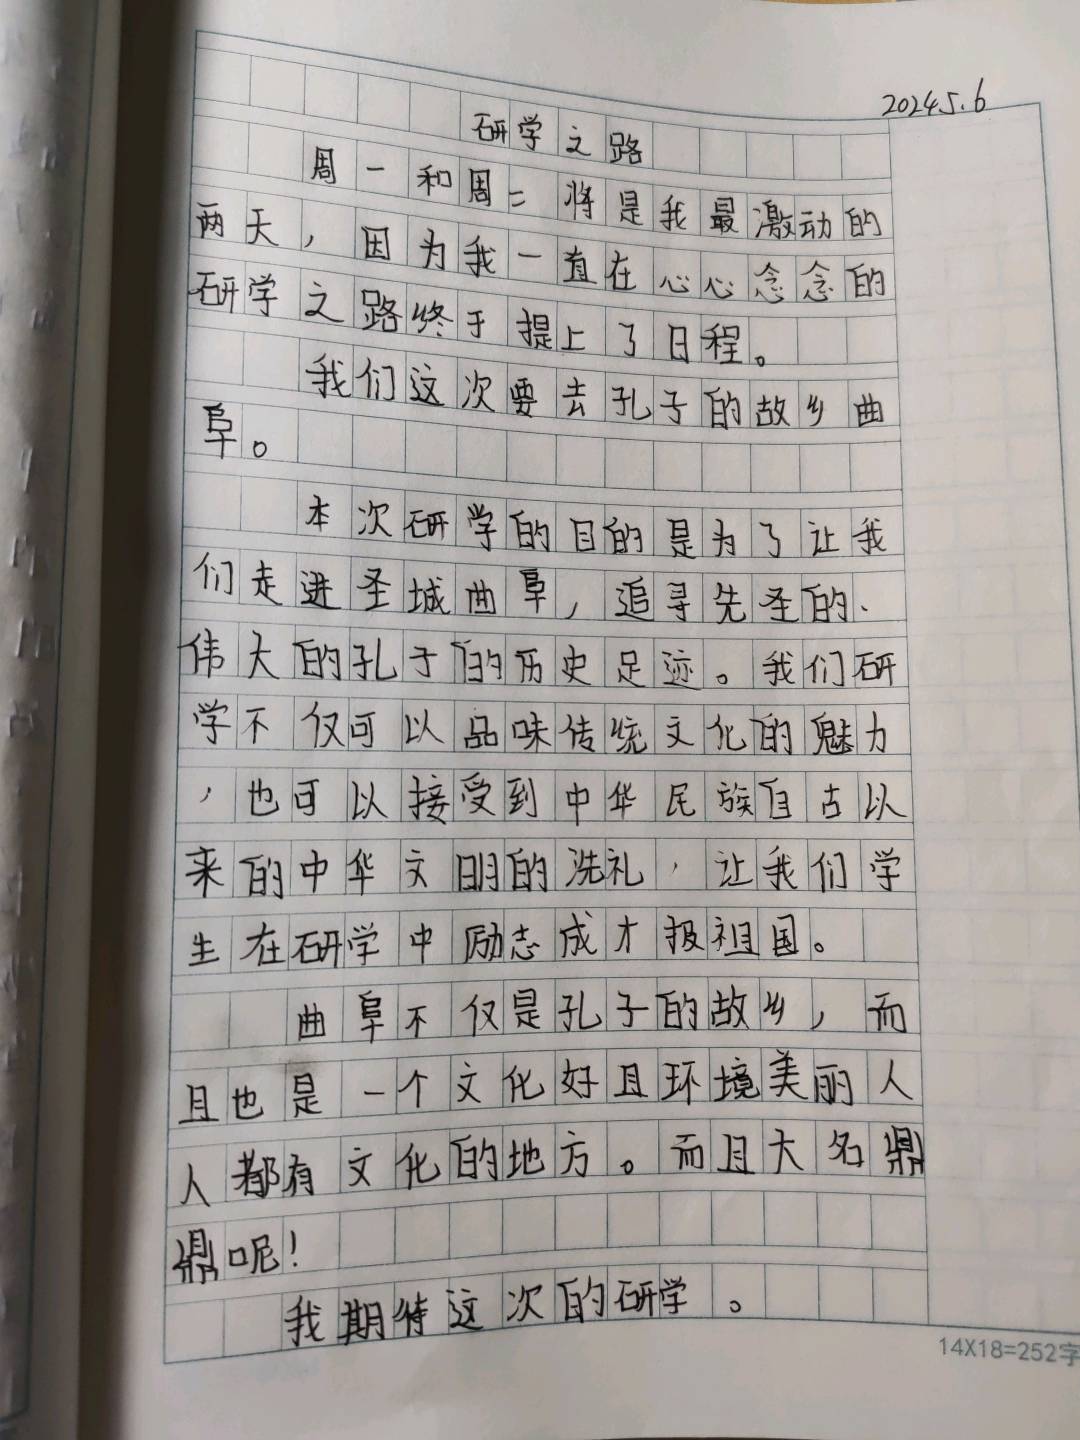 2024.5.6
研学之路
周一和周二将是我最激动的
两天，因为我一直在心心念念的
研学之路终于提上了日程。
我们这次要去孔子的故乡曲
阜。
本次研学的目的是为了让我
们走进圣城曲阜，追寻先圣的、
伟大的孔子的历史足迹。我们研
学不仅可以品味传统文化的魅力
，也可以接受到中华民族自古以
来的中华文明的洗礼，让我们学
生在研学中励志成才报祖国。
曲阜不仅是孔子的故乡，而
且也是一个文化好且环境美丽人
人都有文化的地方。而且大名鼎
鼎呢！
我期待这次的研学。
14X18=252字